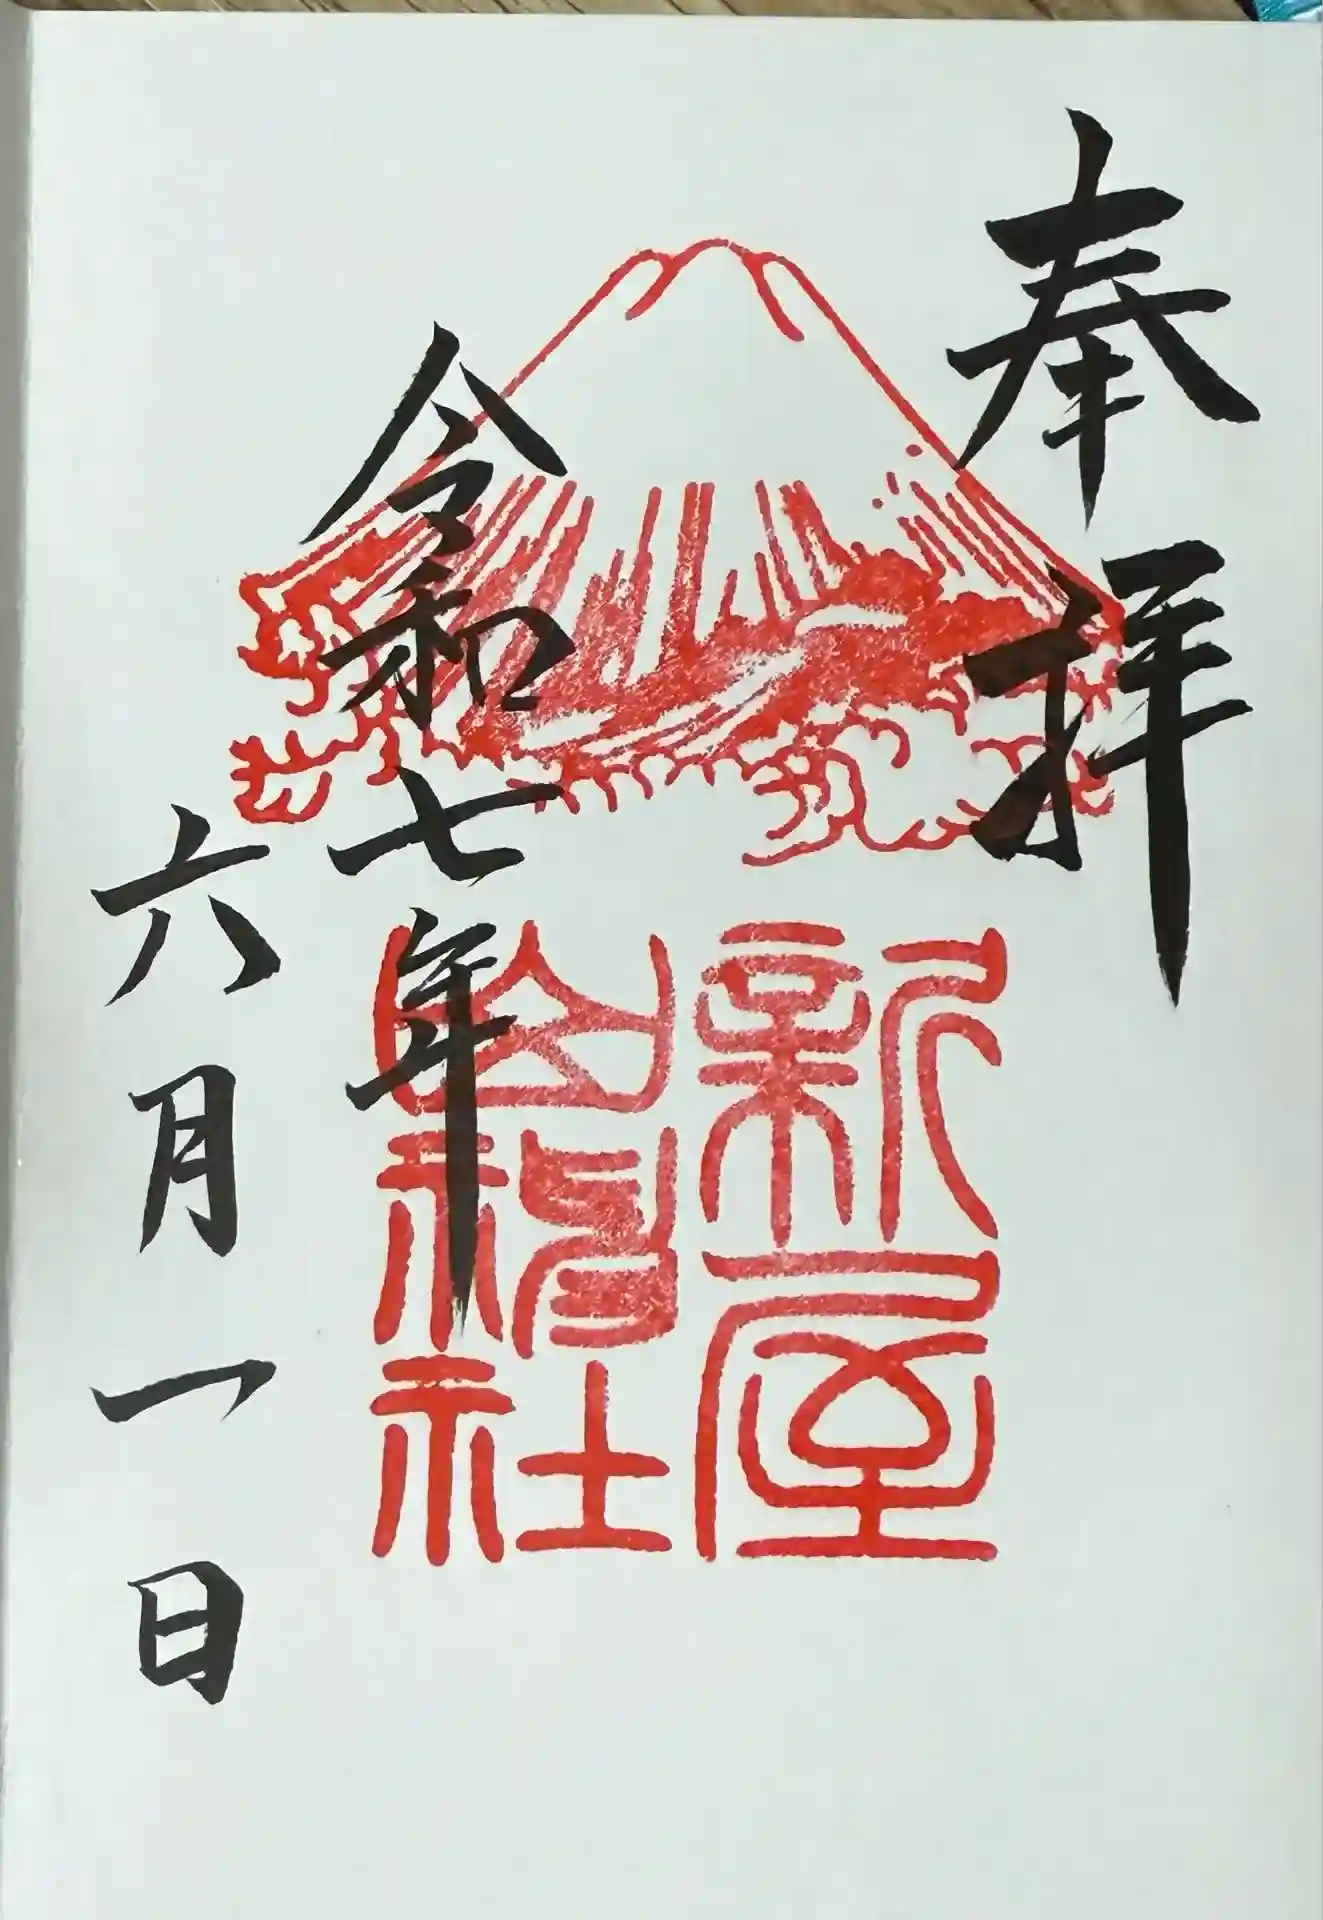 奉拝
新屋
山神社
令和七年
六月一日